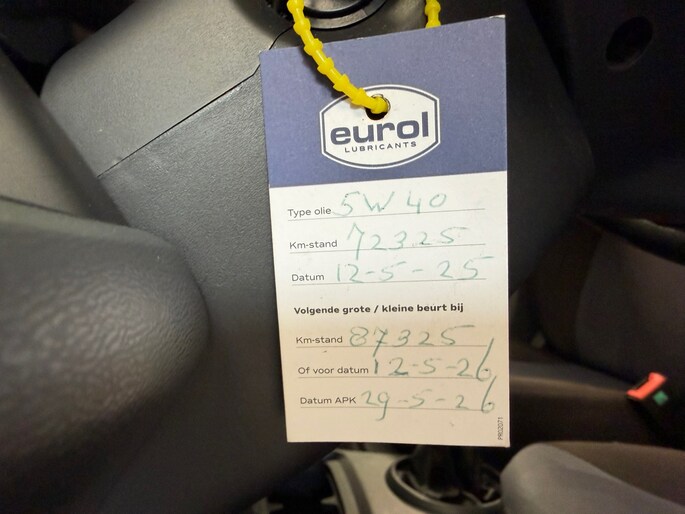 eurol
LUBRICANTS
Type olie 5W40
Km-stand 72325
Datum 12-5-25
Volgende grote / kleine beurt bij
Km-stand 87325
Of voor datum 12-5-26
Datum APK 29-5-26
PR02071